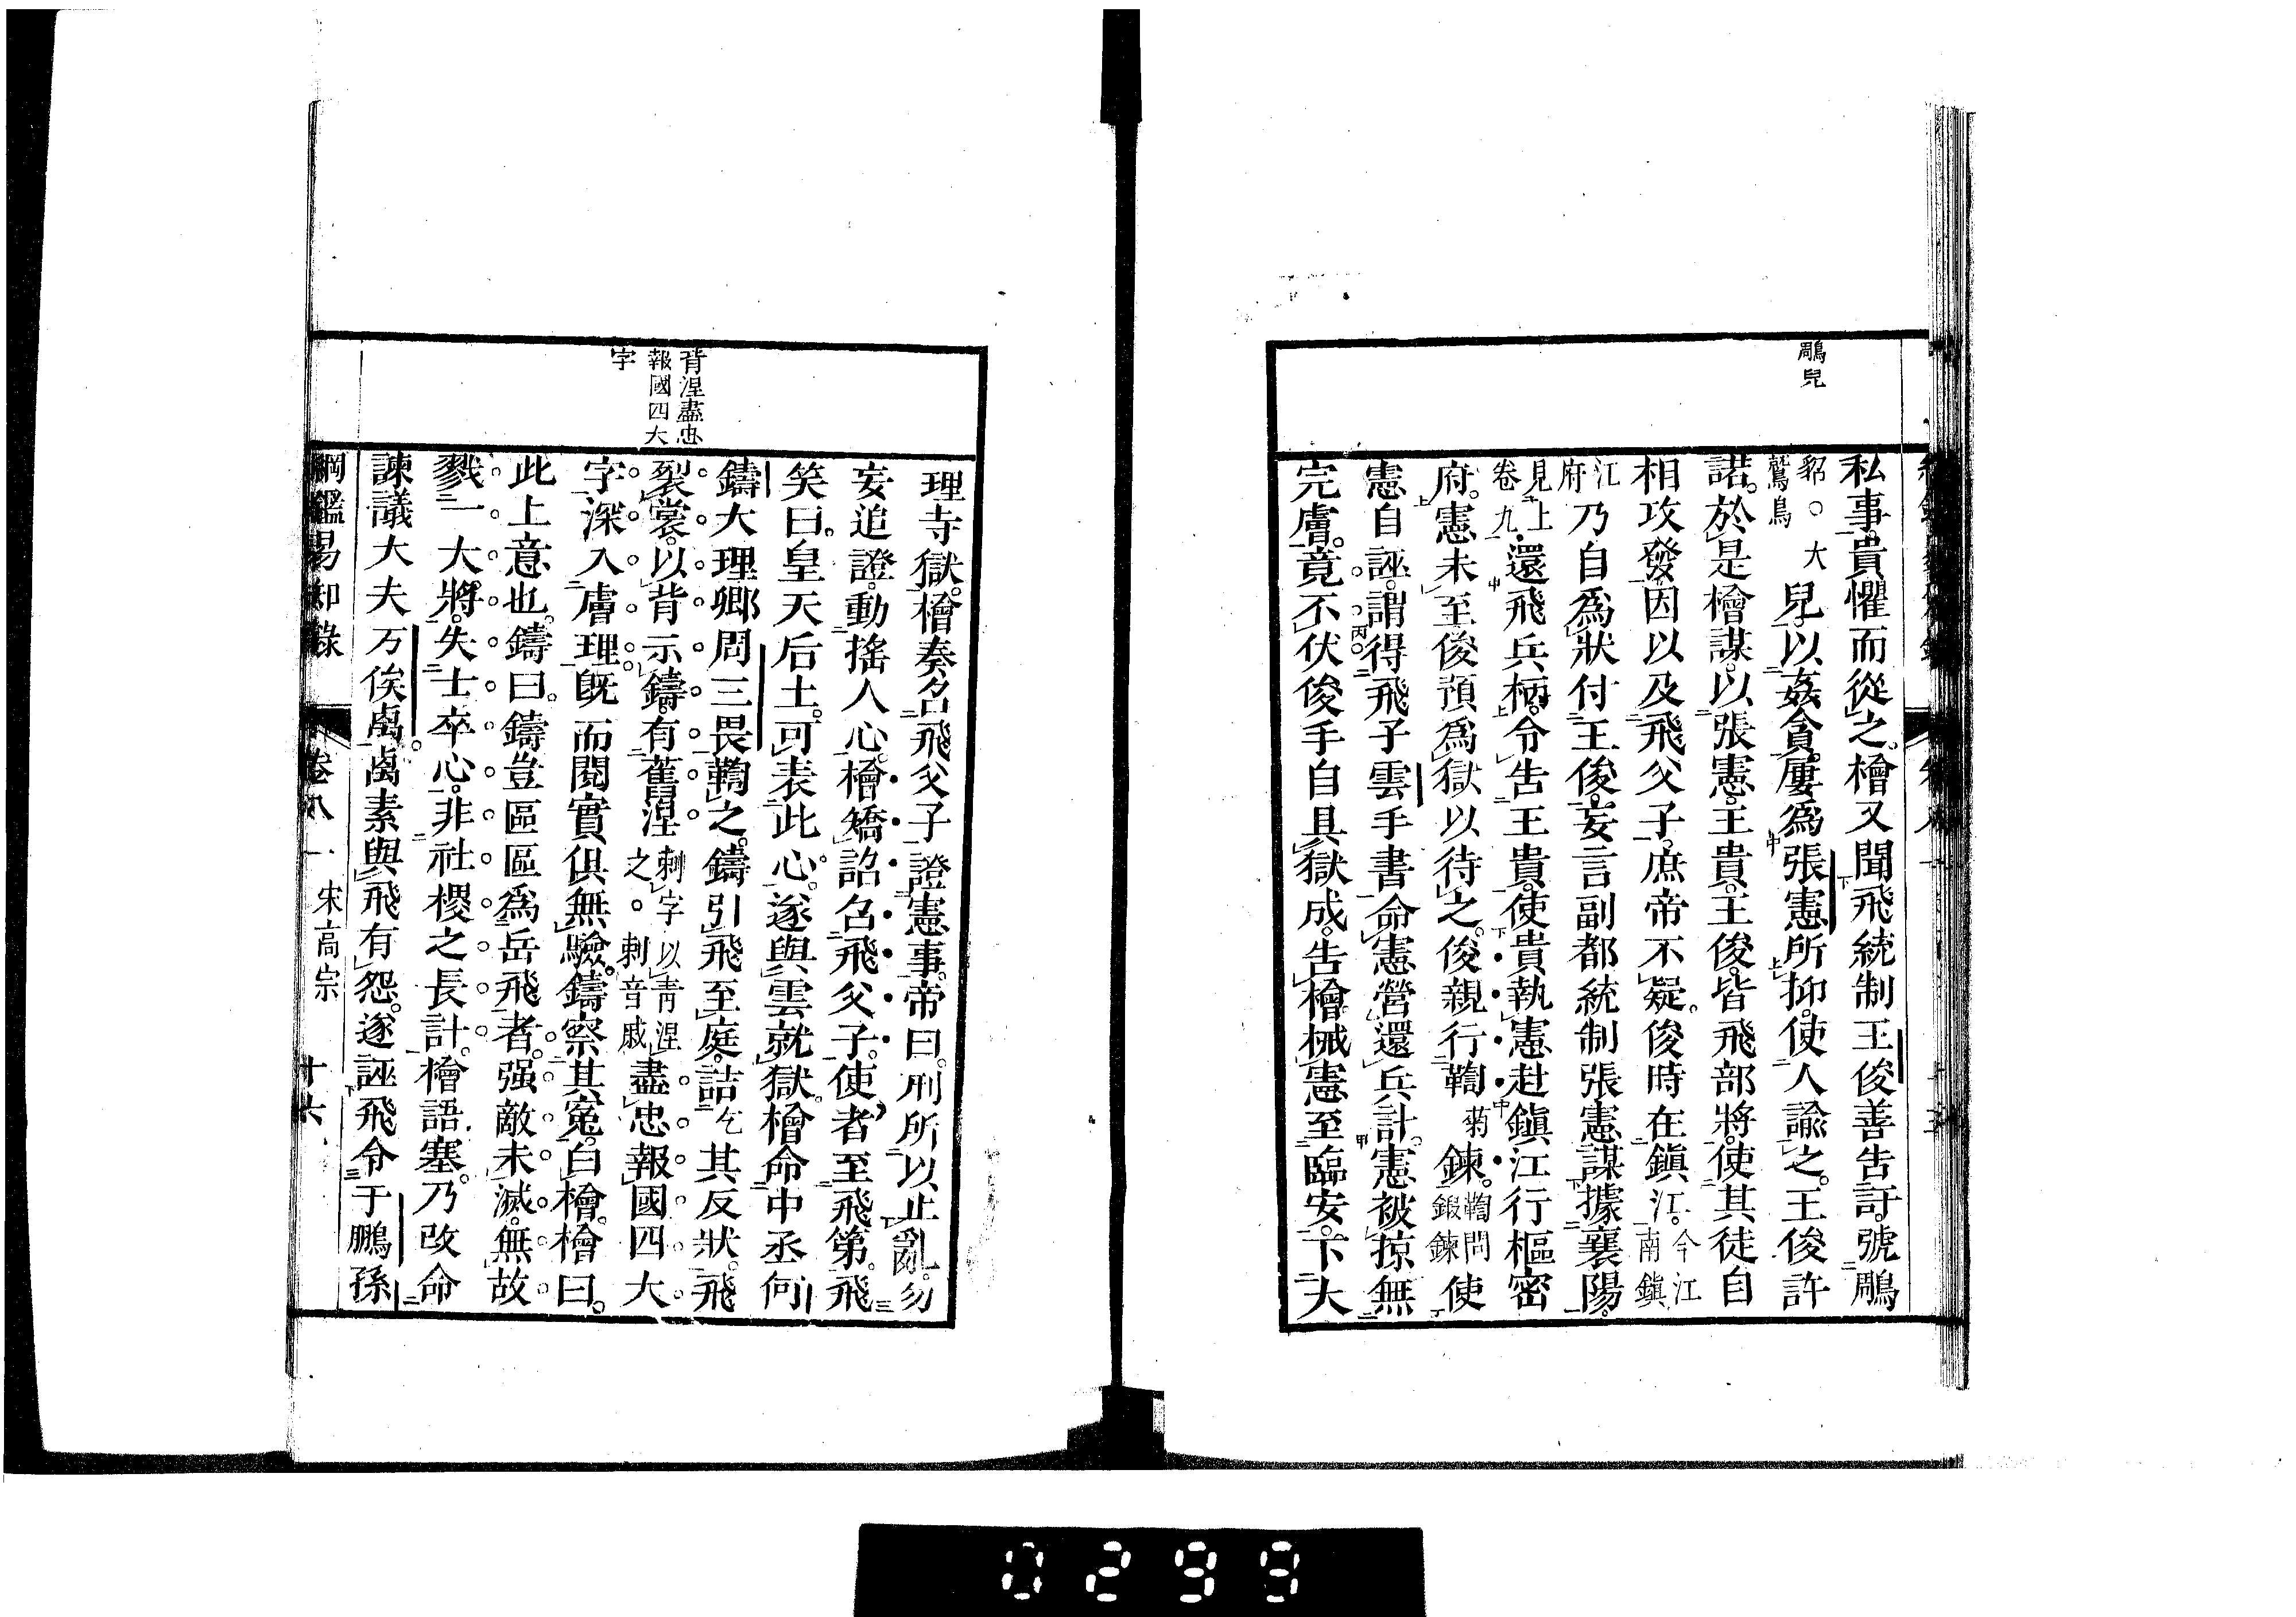 鵰兒
私事。貴懼而從之。檜又聞飛統制王俊善告訐。號鵰
貂。○大鷲鳥兒。以姦貪。屢爲張憲所抑。使人諭之。王俊許
諾。於是檜謀。以張憲。王貴。王俊。皆飛部將。使其徒自
相攻發。因以及飛父子。庶帝不疑。俊時在鎭江。今江南鎭
江府乃自爲狀付王俊。妄言副都統制張憲謀據襄陽。
見上卷九。還飛兵柄。令告王貴。使貴執憲赴鎭江行樞密
府。憲未至俊預爲獄以待之。俊親行鞫菊鍊。鞫問鍛鍊使
憲自誣。謂得飛子雲手書。命憲營還兵計。憲被掠無
完膚。竟不伏。俊手自具獄成。告檜。械憲至臨安。下大
背涅盡忠
報國四大
字
理寺獄。檜奏召飛父子證憲事。帝曰。刑所以止亂。勿
妄追證。動搖人心。檜矯詔召飛父子。使者至飛第。飛
笑曰。皇天后土。可表此心。遂與雲就獄。檜命中丞何
鑄大理卿周三畏鞫之。鑄引飛至庭。詰乞其反狀。飛
裂裳。以背示鑄。有舊涅刺字以靑涅之。○刺音戚盡忠報國四大
字。深入膚理。旣而閱實俱無驗。鑄察其寃。白檜。檜曰。
此上意也。鑄曰。鑄豈區區爲岳飛者。强敵未滅。無故
戮一大將。失士卒心。非社稷之長計。檜語塞。乃改命
諫議大夫万俟卨。卨素與飛有怨。遂誣飛令于鵬孫
綱鑑易知錄 卷八一 宋高宗 十六
0299